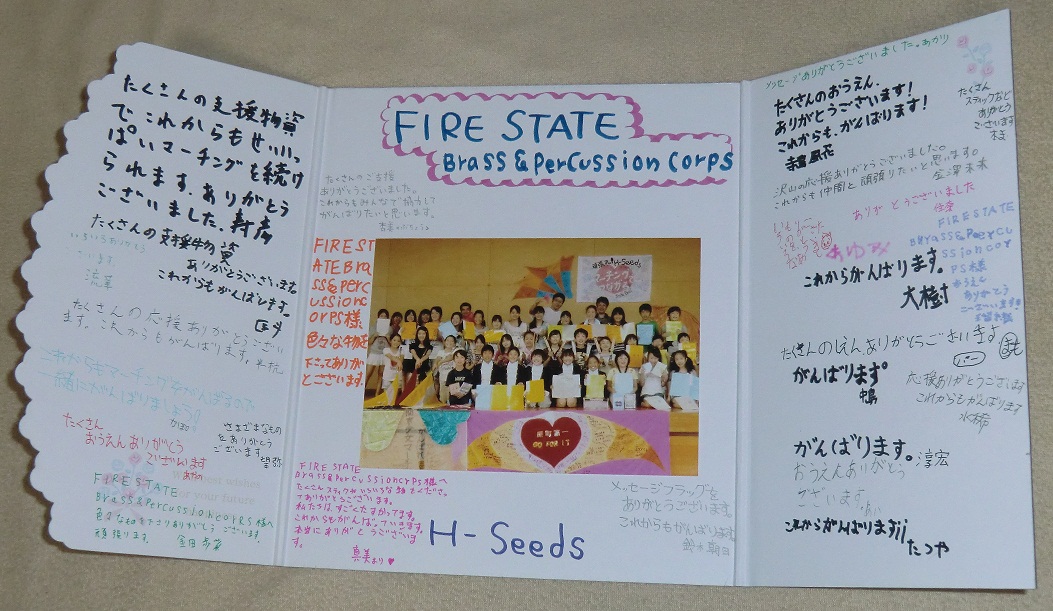 たくさんの支援物資
で、これからもせいいっ
ぱいマーチングを続け
られます、ありがとう
ございました。
たくさんの支援物資
ありがとうございました
これからもがんばります。
いろいろありがとう
ございます
たくさんの応援ありがとうござい
ます。これからもがんばります。
これからもマーチングをがんばるので
一緒にがんばりましょう!!
たくさん
おうえんありがとう
ございます
さまざまなもの
をありがとう
ございます。
best wishes
for your future
FIRE STATE
Brass & Percussion corps 様へ
色々な物を下さりありがとうございます。
頑張ります。
FIRE STATE
Brass & Percussion Corps
たくさんのご支援
ありがとうございました。
これからもみんなで協力して
がんばりたいと思います。
FIRE ST
ATE Bra
ss & perc
ussion c
orps 様
色々な物を
下さってありが
とうございます。
頑張れ H-Seeds
マーチングで
つながろう
FIRE STATE
Brass & Percussion corps 様へ
たくさんスティックやいろいろな物をくださっ
てありがとうございます。
私たちは、すごくたすかってます。
これからもがんばっていきます。
本当にありがとうございま
す。
真美より♥
H-Seeds
メッセージフラッグを
ありがとうございます。
これからもがんばります。
鈴木朝日
メッセージありがとうございました。あかり
たくさんのおうえん、
ありがとうございます!
これからも、がんばります!
たくさん
スティックなど
ありがとう
ございます
沢山の応援ありがとうございました。
これからも仲間と頑張りたいと思います。
金澤未来
ありがとうございました
あゆみ
FIRE STATE
Brass & Percu
ssion cor
ps 様
おうえん
ありがとう
ございます
これからがんばります。
大樹
たくさんのしえん、ありがとうございます
がんばります。
応援ありがとうございます
これからもがんばります
水稀
がんばります。 淳宏
おうえんありがとう
ございます。
これからがんばります!!
たつや